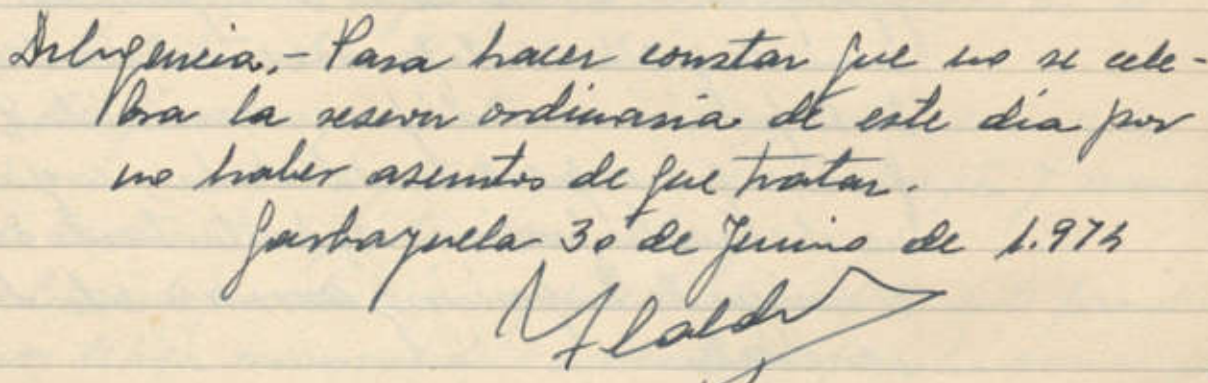 Diligencia.- Para hacer constar que no se cele-
bra la sesion ordinaria de este día por
no haber asuntos de que tratar.
Garbayuela 30 de Junio de 1.974